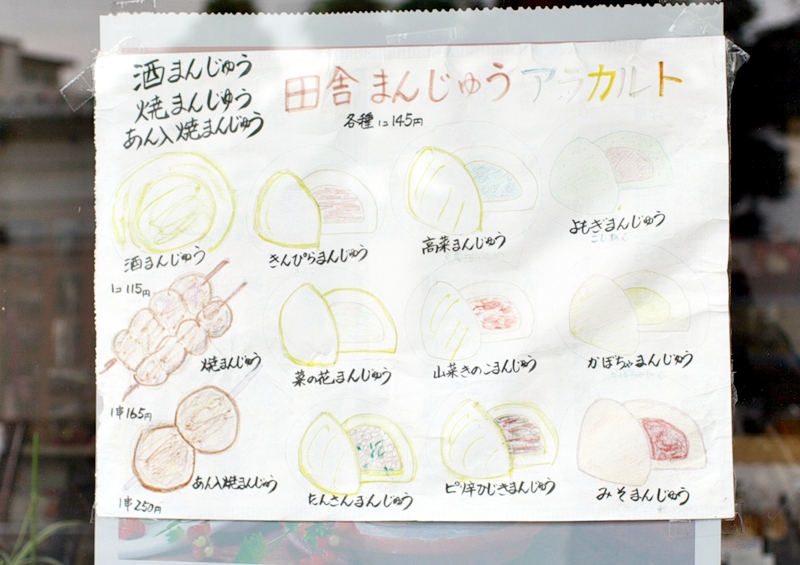 酒まんじゅう
焼まんじゅう
あん入焼まんじゅう
田舎まんじゅうアラカルト
各種1コ145円
酒まんじゅう
1コ115円
きんぴらまんじゅう
高菜まんじゅう
よもぎまんじゅう
焼まんじゅう
1串165円
菜の花まんじゅう
山菜きのこまんじゅう
かぼちゃまんじゅう
あん入焼まんじゅう
1串250円
たんさんまんじゅう
ピリ辛ひじきまんじゅう
みそまんじゅう